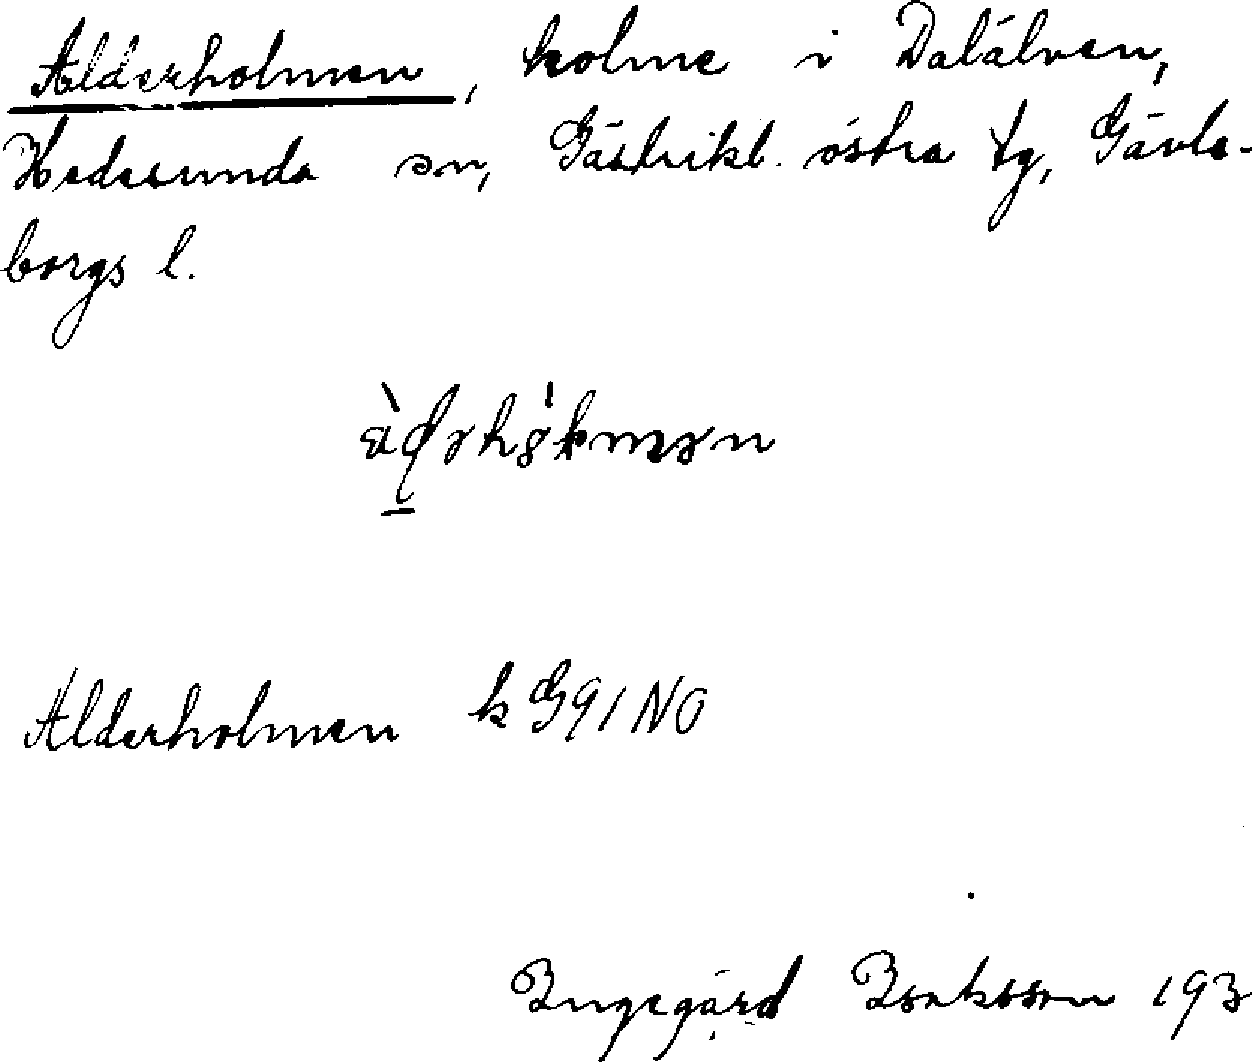 Alderholmen, holme i Dalälven,
Hedesunda sn, Gästrikl. östra tg, Gävle-
borgs l.
Alderholmen k G91NO
Ingegärd Isaksson 193